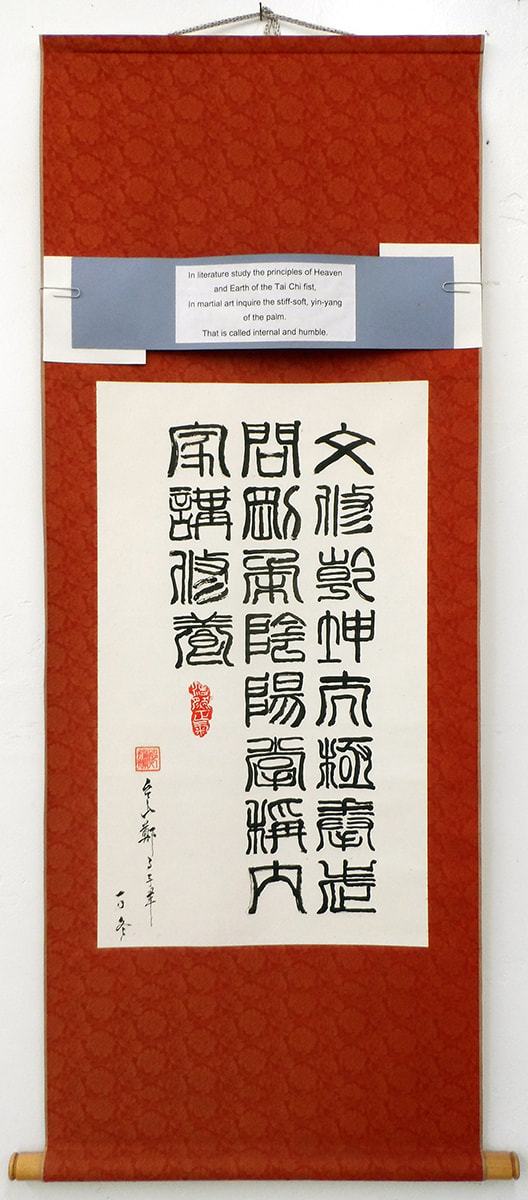 In literature study the principles of Heaven
and Earth of the Tai Chi fist,
In martial art inquire the stiff-soft, yin-yang
of the palm.
That is called internal and humble.
文修乾坤太極拳武
問剛柔陰陽掌稱內
家講修養
浩然正氣
鄭